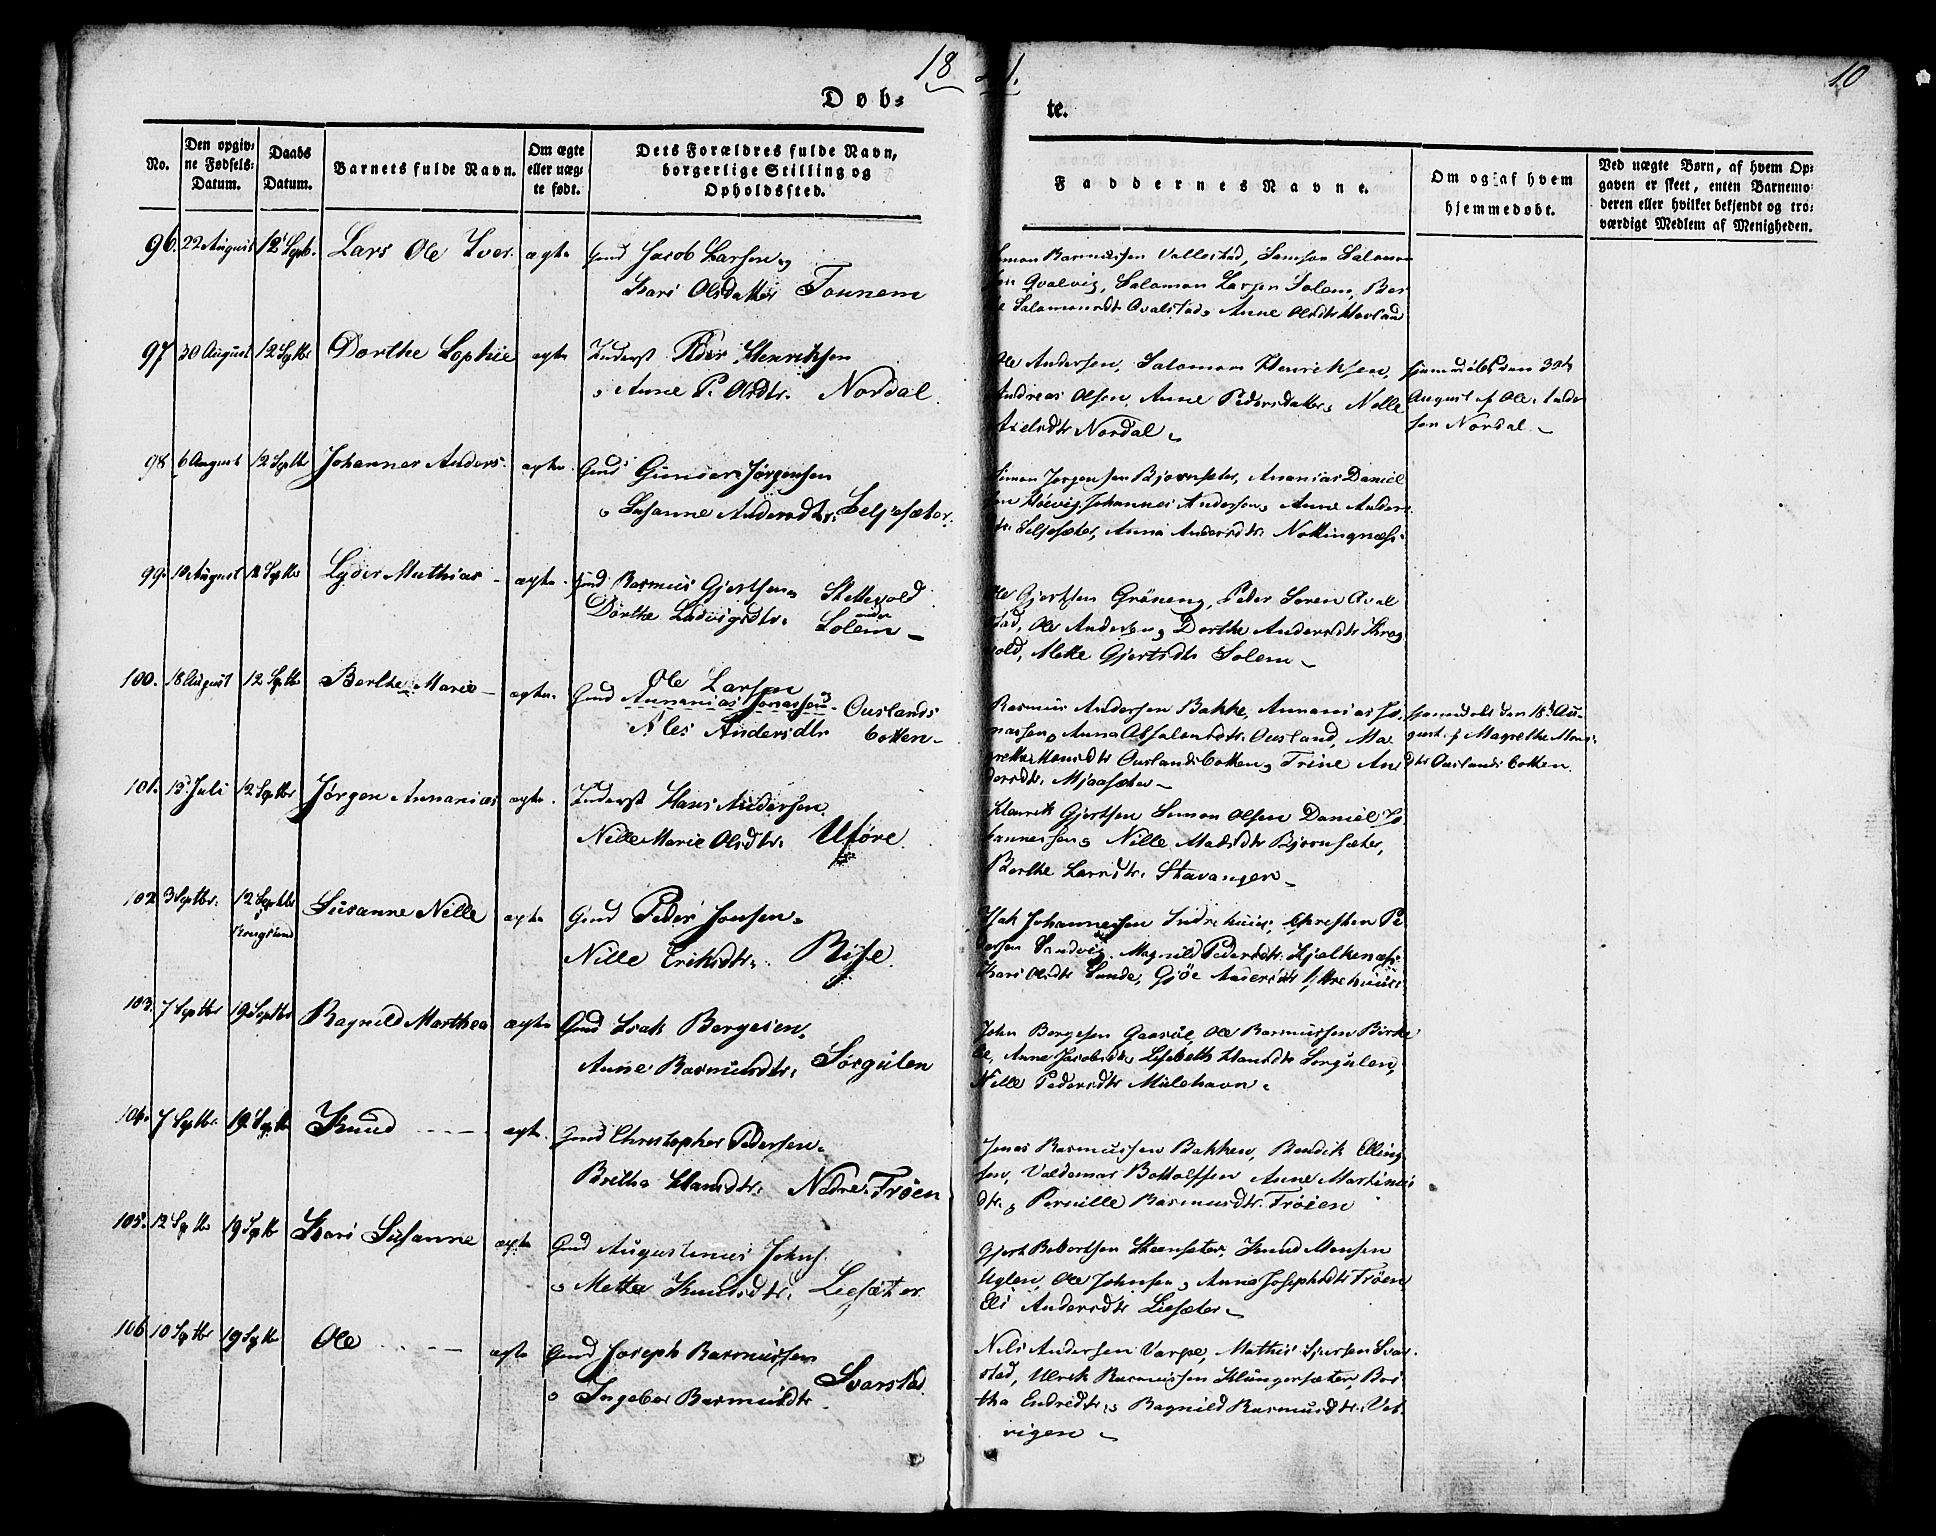 18 41.
10
Døb-
te.
No.
Den opgiv-
ne Fødsels-
Datum.
Daabs
Datum.
Barnets fulde Navn.
Om ægte
eller uæg-
te født.
Dets Forældres fulde Navn,
borgerlige Stilling og
Opholdssted.
Faddernes Navne.
Om og af hvem
hjemmedøbt.
Ved uægte Børn, af hvem Op-
gaven er skeet, enten Barnemo-
deren eller hvilket bekjendt og tro-
værdigt Medlem af Menigheden.
96. 22 August 12 Septb. Lars Ole Iver. ægte Gmd Jacob Larsen og
Kari Olsdatter Tonnem
Simon Rasmussen Vallestad, Samson Salomon
sen Qvalvig, Salomon Larsen Solem, Ber
the Salomonsdtr Qvalstad, Anne Olsdtr Hovland
97 30 August 12 Septbr Dorthe Sophie ægte Inderst Peder Henriksen
o Anne P. Olsdtr. Nordal.
Ole Andersen, Salomon Henriksen,
Andreas Olsen, Anne Pedersdatter, Nille
Axelsdtr Nordal
hjemmedøbt den 30te
August af Ole Ander
sen Nordal
98 6 August 12 Septbr Johannes Anders. ægte Gmd Gunder Jørgensen
o Susanne Andersdtr. Seljesæter.
Simon Jørgensen Bjørnsæter, Ananias Daniel
sen Høevig, Johannes Andersen, Anne Anders
dtr. Seljesæter, Anna Andersdtr. Nottingnæss
99. 10 August 12 Septbr Lyder Mathias ægte Gmd Rasmus Gjertsen Skttevold
Dorthe Ludvigsdtr. Solem
Ole Gjertsen Grøneng, Peder Soren Aval
stad, Ole Andersen, Dorthe Andersdtr Krog
vold, Mette Gjertsdtr Solem
100. 18 August 12 Septbr Berthe Marie ægte. Gmd Ole Larsen
Annanias Jonassen Ouslands
Ales Andersdtr botten
Rasmus Andersen Bakke, Annanias Jo
nassen, Anna Absalonsdtr. Ousland, Ma
grethe Monsdtr Ouslandsbotten, Trine An
dersdtr. Mjaasæter
hjemmedøbt den 18d Au-
gust af Magrethe Mons
dtr Ouslandsbotten.
101. 15 Juli 12 Septbr Jørgen Annanias ægte. Inderst Hans Andersen
Nille Marie Olsdtr. Uføre.
Henrik Gjertsen Simon Olsen Daniel Jo
hannessen, Nille Matsdtr Bjørnsæter,
Berthe Larsdtr. Stavanger
102 3 Septbr. 12 Septbr Susanne Nille ægte Gmd Peder Jonsen
Nille Eriksdtr. Rise.
Isak Johannessen Indrehuus, Christen Pe
dersen Sandvig, Magnild Pedersdtr. Kjelkenæss
Kari Olsdtr Sunde, Gjøe Andersdtr Yttrehuus
103. 7 Septbr 19 Septbr Ragnild Marthea ægte Gmd Isak Børgesen
Anne Rasmusdtr. Sørgulen
John Børgesen Gaasøe, Ole Rasmussen Birke
, Anne Jacobsdtr, Lisebeth Hansdtr Sørgulen,
Nille Pedersdtr Mulehavn
104. 7 Septbr. 19 Septbr Knud ægt. Gmd Christopher Pedersen
Britha Hansdtr. Nedre Frøen
Jonas Rasmussen Bakken, Bendik Elling
sen, Valdemar Bottolfsen Anne Martinus
dtr. Pernille Rasmusdtr. Frøien
105. 12 Septbr 19 Septbr Kari Susanne ægte Gmd Augustinus Johns.
o Mette Knudsdtr. Liesæter.
Gjert Robertsen Steensæter, Knud Monsen
Uglen, Ole Johnsen, Anne Josephsdtr Frøen
Eli Andersdtr Liesæter
106 10 Septbr 19 Septbr Ole ægte Gmd Joseph Rasmussen
o Ingebor Rasmusdtr. Svarstad
Nils Andersen Varpe, Mathis Sjursen Svar
stad, Ulrik Rasmussen Klungersæter, Bri
tha Endredtr, Ragnild Rasmusdtr. Vet
vigen